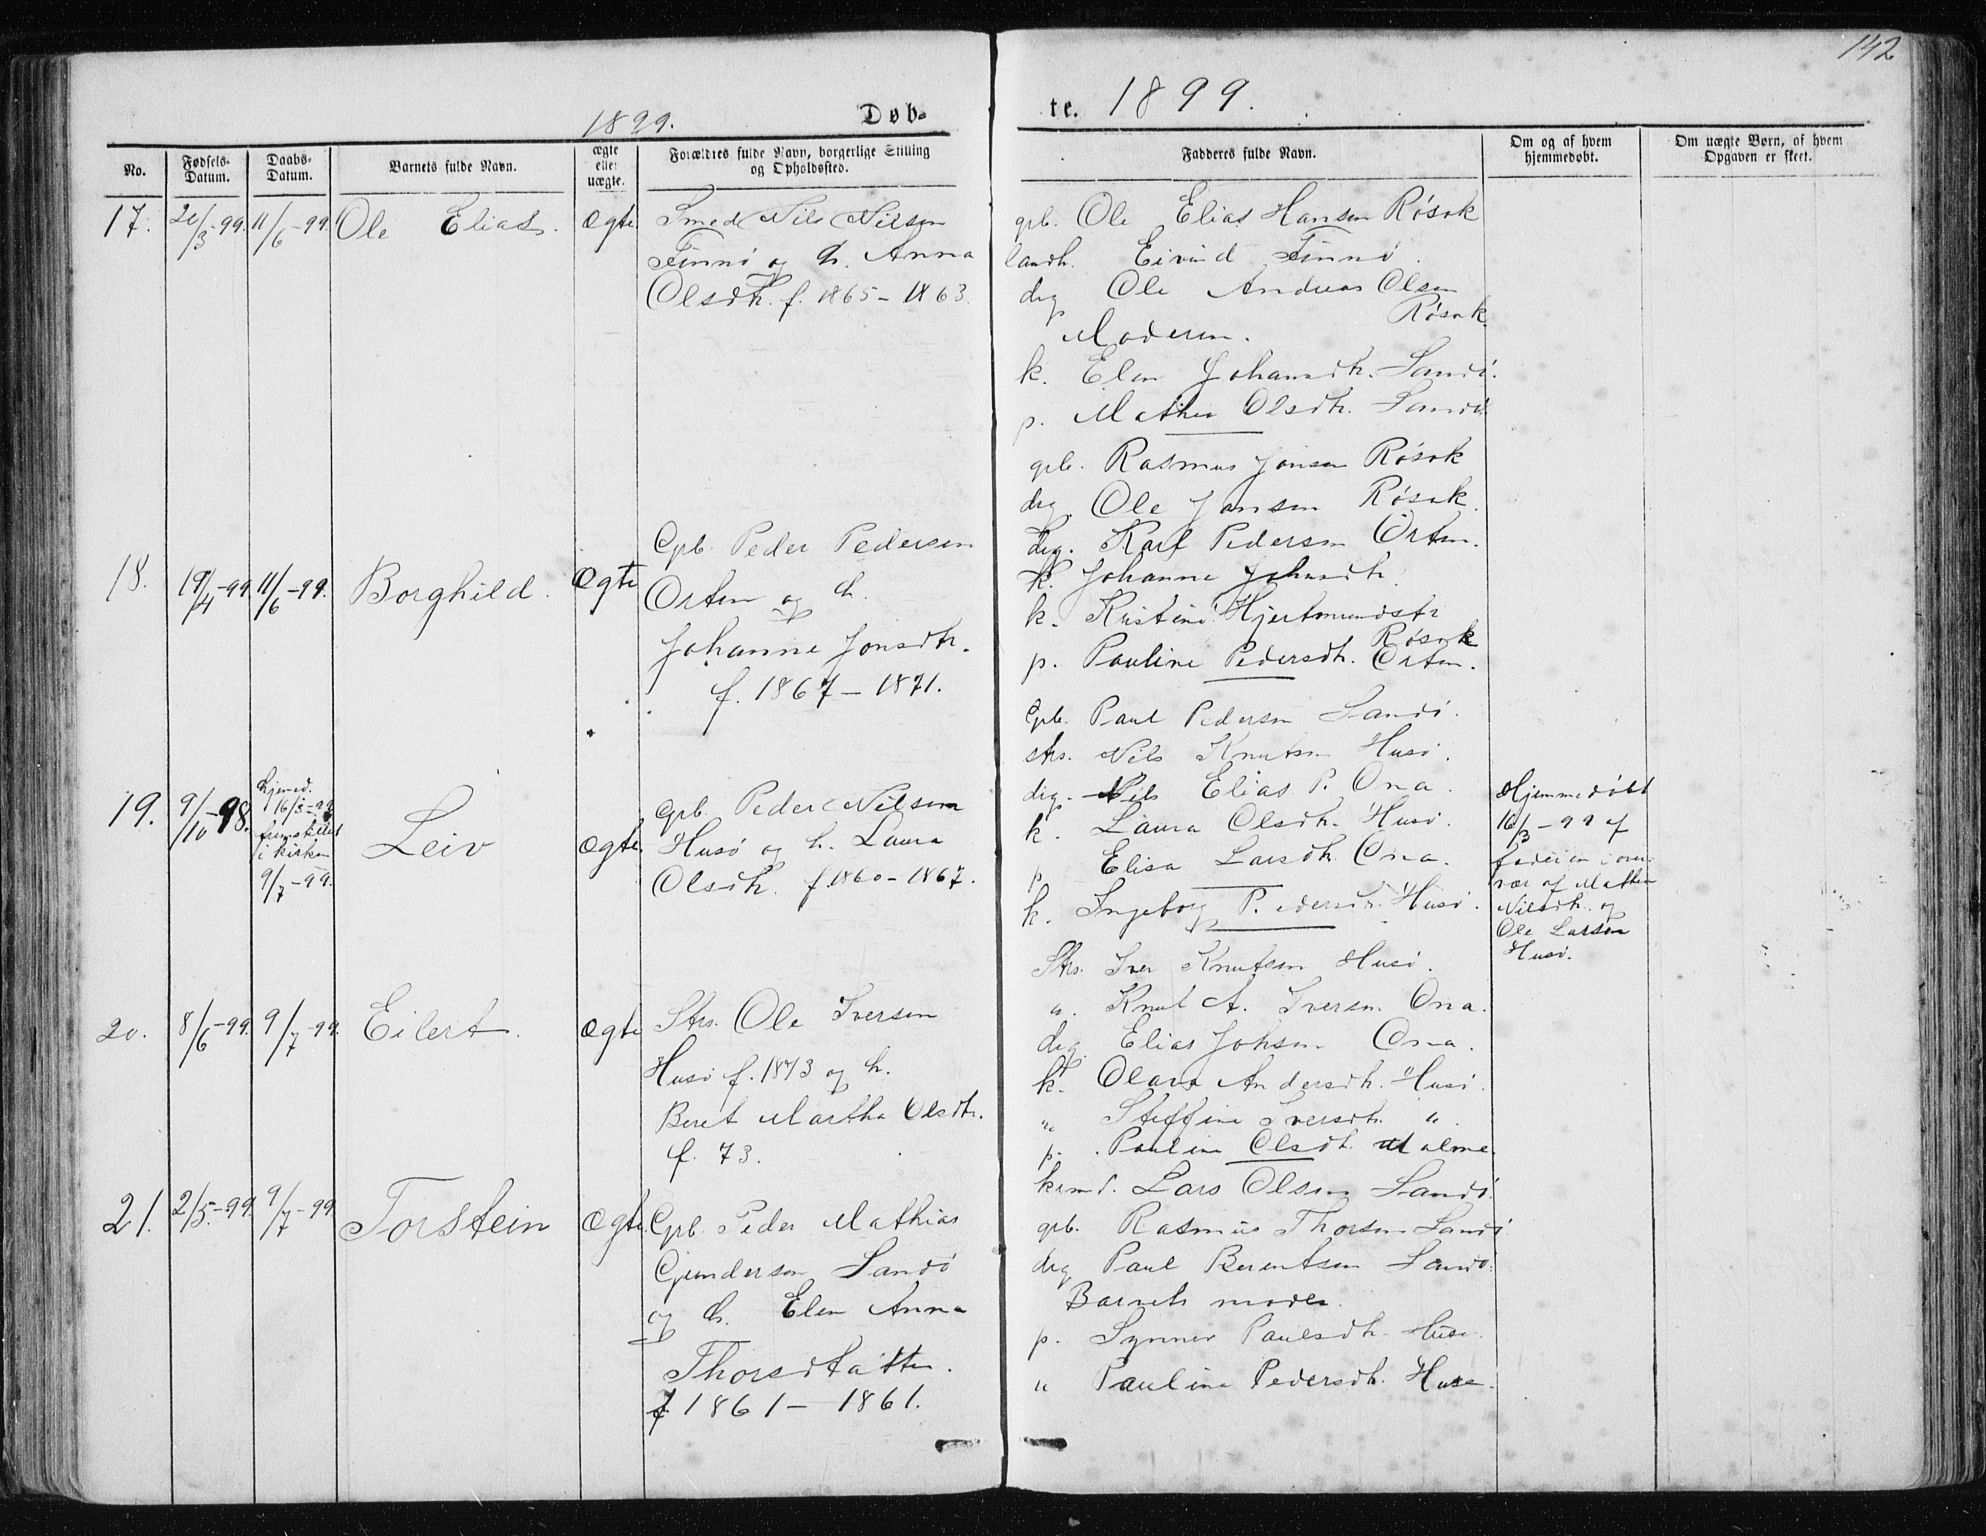 142
1899.
Døb-
te. 1899.
No.
Fødsels-
Datum.
Daabs-
Datum.
Barnets fulde Navn.
ægte
eller
uægte.
Forældres fulde Navn, borgerlige Stilling
og Opholdssted.
Fadderes fulde Navn.
Om og af hvem
hjemmedøbt.
Om uægte Børn, af hvem
Opgaven er skeet.
17. 20/3-99. 11/6-99. Ole Elias. Ægte Smed Nils Nilsen
Finnø og h. Anna
Olsdtr. f. 1865-1863.
grb. Ole Elias Hansen Røsok
landh. Eivind Finnø.
drg Ole Andreas Olsen
Røsok
Moderen.
k. Elen Johansdtr. Sandø.
p. Mathea Olsdtr. Sandø.
18. 19/4-99 11/6-99. Borghild. Ægte Gpb. Peder Pedersen
Orten og h.
Johanne Jonsdtr.
f. 1867-1871.
grb. Rasmus Jonsen Røsok
drg. Ole Jonsen Røsok.
drg. Karl Pedersen Orten.
k. Johanne Johnsdtr.
k. Kristine Hjertmundsdtr
Røsok
p. Pauline Pedersdtr. Orten.
19. 9/10-98. hjemd.
16/3-99
fremstillet
i kirken
9/7-99.
Leiv Ægte. gpb. Peder Nilsen
Husø og h. Laura
Olsdtr. f. 1860-1867.
Gpb. Paul Pedersen Sandø.
strs. Nils Knutsen Husø.
drg. Nils Elias P. Ona.
k. Laura Olsdtr. Husø.
p Elisa Larsdtr. Ona.
k. Ingeborg Pedersdtr. Husø.
Hjemmedøbt
16/3-99 af
faderen i over-
vær af Mathea
Nilsdtr. og
Ole Larsen
Husø.
20. 8/6-99. 9/7-99. Eilert. Ægte Strs. Ole Iversen
Husø f. 1873 og h.
Beret Martha Olsdtr.
f. 73.
Strs. Iver Knutsen Husø.
" Knut A. Iversen Ona.
drg. Elias Johsen Ona.
k. Olava Andersdtr. Husø.
" Steffine Iversdtr. ".
p. Pauline Olsdtr. Malme.
21. 2/5-99. 9/7-99 Torstein Ægte. Gpb. Peder Mathias
Gunderson Sandø
og h. Elen Anna
Thorsdtatter.
f 1861-1861.
krmd. Lars Olsen Sandø.
grb. Rasmus Thorsen Sandø
drg Paul Berentsen Sandø.
Barnets moder.
p. Synnev Paulsdtr. Husø.
" Pauline Pedersdtr. Husø.